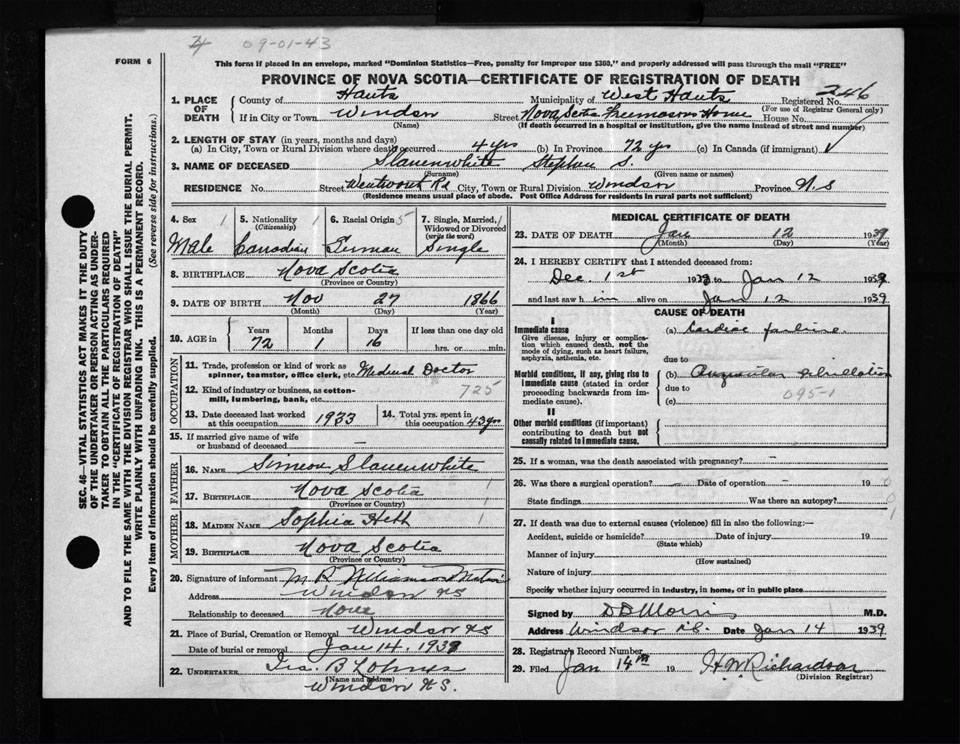 24 09-01-43
FORM 6
This form if placed in an envelope, marked "Dominion Statistics—Free, penalty for improper use $300," and properly addressed will pass through the mail "FREE"
PROVINCE OF NOVA SCOTIA—CERTIFICATE OF REGISTRATION OF DEATH
1. PLACE OF DEATH
County of Hants Municipality of West Hants Registered No. 246
(For use of Registrar General only)
If in City or Town Windsor Street Nova Scotia Freemasons Home House No.
(Name) (If death occurred in a hospital or institution, give the name instead of street and number)
2. LENGTH OF STAY (in years, months and days)
(a) In City, Town or Rural Division where death occurred 4 yrs (b) In Province 72 yrs (c) In Canada (if immigrant) ✓
3. NAME OF DECEASED Slauenwhite Stephen S.
(Surname) (Given name or names)
RESIDENCE No. Street Wentworth Rd City, Town or Rural Division Windsor Province N.S
(Residence means usual place of abode. Post Office Address for residents in rural parts not sufficient)
4. Sex 1 Male
5. Nationality 1 (Citizenship) Canadian
6. Racial Origin 5 German
7. Single, Married, Widowed or Divorced (write the word) 1 Single
8. BIRTHPLACE Nova Scotia
(Province or Country)
9. DATE OF BIRTH Nov 27 1866
(Month) (Day) (Year)
10. AGE in Years Months Days If less than one day old
72 1 16 hrs. or min.
OCCUPATION
11. Trade, profession or kind of work as spinner, teamster, office clerk, etc. Medical Doctor
12. Kind of industry or business, as cotton-mill, lumbering, bank, etc. 725
13. Date deceased last worked at this occupation 1933
14. Total yrs. spent in this occupation 43 yrs
15. If married give name of wife or husband of deceased —
FATHER
16. NAME Simeon Slauenwhite
17. BIRTHPLACE Nova Scotia 1
MOTHER
18. MAIDEN NAME Sophia Hebb 1
19. BIRTHPLACE Nova Scotia
(Province or Country)
20. Signature of informant M. R. Williamson Matron
Address Windsor NS
Relationship to deceased None
21. Place of Burial, Cremation or Removal Windsor NS
Date of burial or removal Jan 14, 1939
22. UNDERTAKER Ira. B Lohnes
(Name and address)
Windsor N.S.
MEDICAL CERTIFICATE OF DEATH
23. DATE OF DEATH Jan 12 1939
(Month) (Day) (Year)
24. I HEREBY CERTIFY that I attended deceased from:
Dec. 1st 1938 to Jan 12 1939
and last saw him alive on Jan 12 1939
CAUSE OF DEATH
I
Immediate cause
Give disease, injury or complication which caused death, not the mode of dying, such as heart failure, asphyxia, asthenia, etc.
(a) Cardiac failure
due to
Morbid conditions, if any, giving rise to immediate cause (stated in order proceeding backwards from immediate cause).
(b) Auricular Fibrillation
due to 095-1
(c)
II
Other morbid conditions (if important) contributing to death but not causally related to immediate cause.
25. If a woman, was the death associated with pregnancy? —
26. Was there a surgical operation? — Date of operation — 19 0
State findings Was there an autopsy? 0
27. If death was due to external causes (violence) fill in also the following:—
Accident, suicide or homicide? Date of injury 19
(State which)
Manner of injury
(How sustained)
Nature of injury
Specify whether injury occurred in Industry, in home, or in public place
Signed by D D Morris M.D.
Address Windsor N.S. Date Jan 14 1939
28. Registrar's Record Number
29. Filed Jan 14th 19 H. W. Richardson
(Division Registrar)
SEC. 46—VITAL STATISTICS ACT MAKES IT THE DUTY
OF THE UNDERTAKER OR PERSON ACTING AS UNDER-
TAKER TO OBTAIN ALL THE PARTICULARS REQUIRED
IN THE "CERTIFICATE OF REGISTRATION OF DEATH"
AND TO FILE THE SAME WITH THE DIVISION REGISTRAR WHO SHALL ISSUE THE BURIAL PERMIT.
WRITE PLAINLY WITH UNFADING INK. THIS IS A PERMANENT RECORD.
Every item of Information should be carefully supplied. (See reverse side for instructions.)